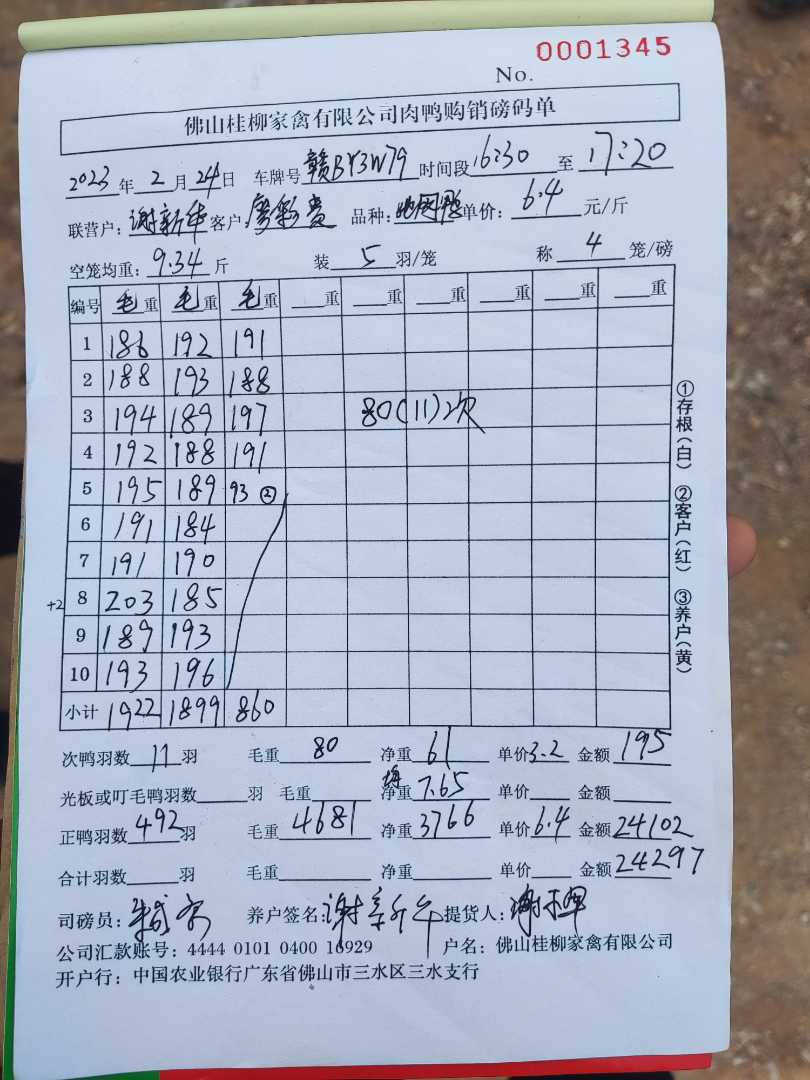 No. 0001345
佛山桂柳家禽有限公司肉鸭购销磅码单
2023年2月24日 车牌号赣BY3W79时间段16:30至17:20
联营户:谢新华 客户:廖彩贵 品种: 单价:6.4元/斤
空笼均重:9.34斤 装5羽/笼 称4笼/磅
编号 毛重 毛重 毛重 重 重 重 重 重 重
1 186 192 191
2 188 193 188
3 194 189 197 80(11)次
4 192 188 191
5 195 189 93 ②
6 191 184
7 191 190
+2 8 203 185
9 189 193
10 193 196
小计 1922 1899 860
①存根(白) ②客户(红) ③养户(黄)
次鸭羽数11羽 毛重80 净重61 单价3.2 金额195
光板或叮毛鸭羽数 羽 毛重 净重7.65 单价 金额
正鸭羽数492羽 毛重4681 净重3766 单价6.4 金额24102
合计羽数 羽 毛重 净重 单价 金额24297
司磅员: 养户签名:谢 提货人:谢
公司汇款账号:4444 0101 0400 16929 户名:佛山桂柳家禽有限公司
开户行:中国农业银行广东省佛山市三水区三水支行